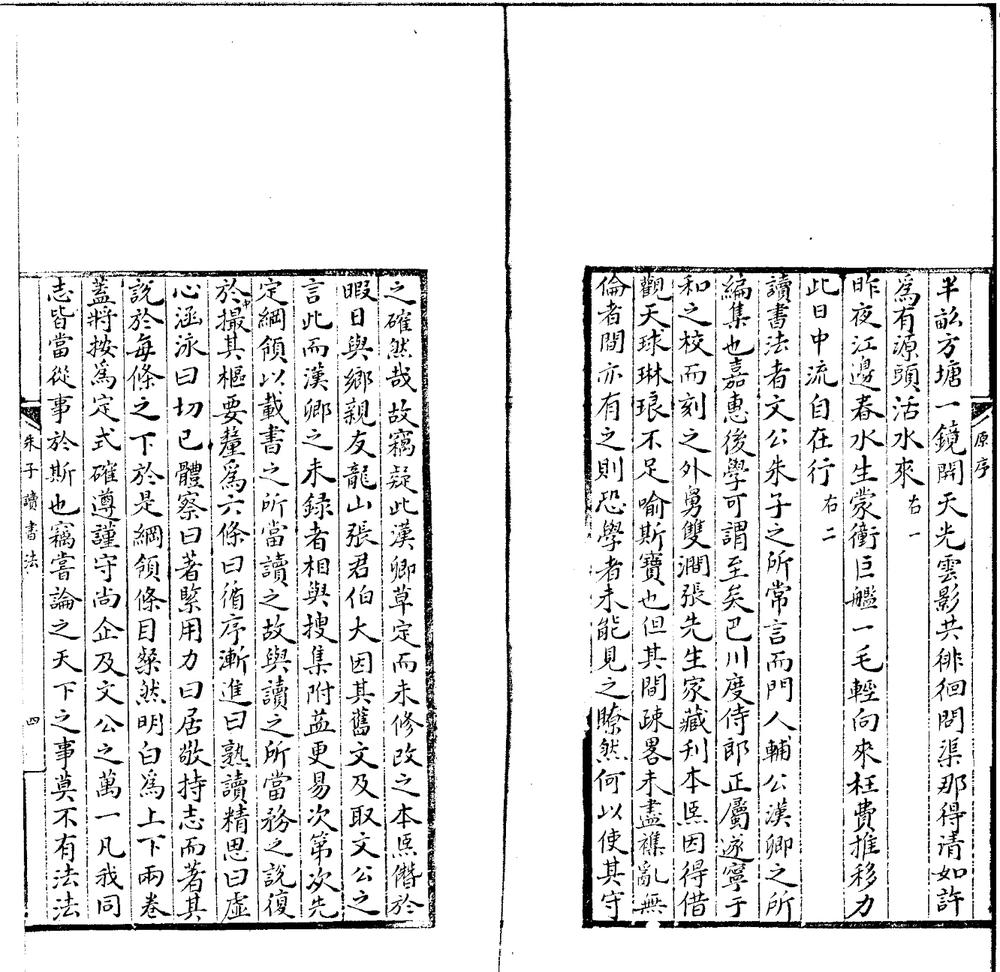 原序
半畝方塘一鏡開天光雲影共徘徊問渠那得清如許
為有源頭活水來 右一
昨夜江邊春水生蒙衝巨艦一毛輕向來枉費推移力
此日中流自在行 右二
讀書法者文公朱子之所常言而門人輔公漢卿之所
編集也嘉惠後學可謂至矣巴川度侍郎正屬遂寧于
和之校而刻之外舅雙澗張先生家藏刋本熈因得借
觀天球琳琅不足喻斯寶也但其間疎畧未盡襍亂無
倫者間亦有之則恐學者未能見之瞭然何以使其守
之確然哉故竊疑此漢卿草定而未修改之本熈僭於
暇日與鄉親友龍山張君伯大因其舊文及取文公之
言此而漢卿之未録者相與搜集附益更易次第次先
定綱領以載書之所當讀之故與讀之所當務之說復
於中撮其樞要釐爲六條曰循序漸進曰熟讀精思曰虛
心涵泳曰切己體察曰著緊用力曰居敬持志而著其
說於每條之下於是綱領條目粲然明白爲上下兩卷
蓋將按爲定式確遵謹守尚企及文公之萬一凡我同
志皆當從事於斯也竊嘗論之天下之事莫不有法法
朱子讀書法
四